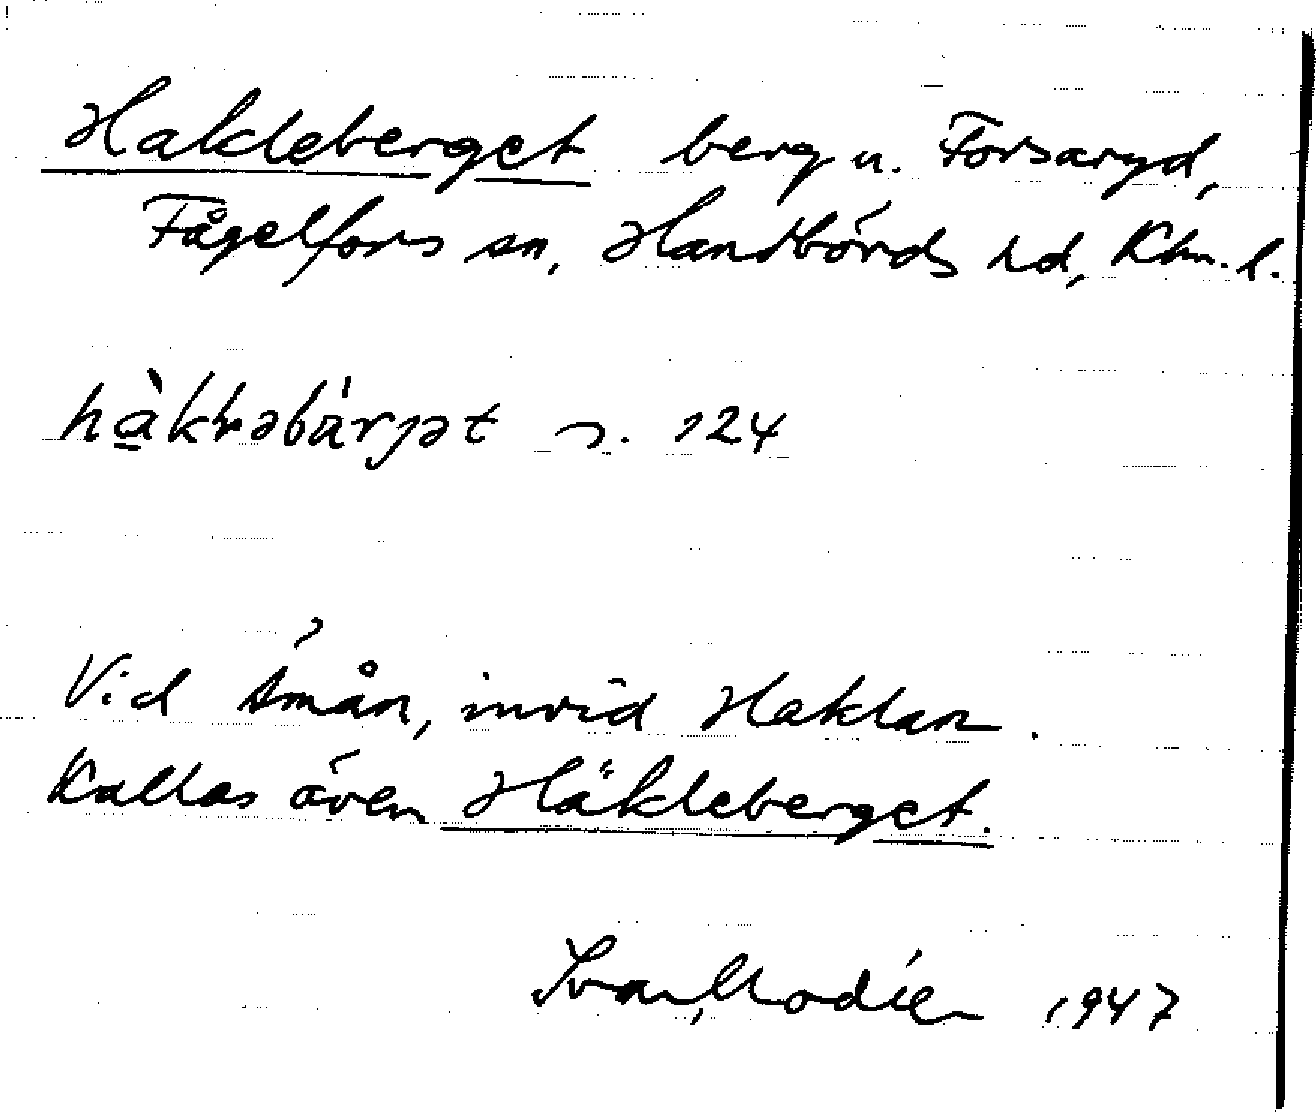 Hakleberget berg u. Forsaryd,
Fågelfors sn, Handbörds hd, Klm. l.
s. 124
Vid Åmån, invid Haklan.
Kallas även Häkleberget.
Ivar Modéer 1947